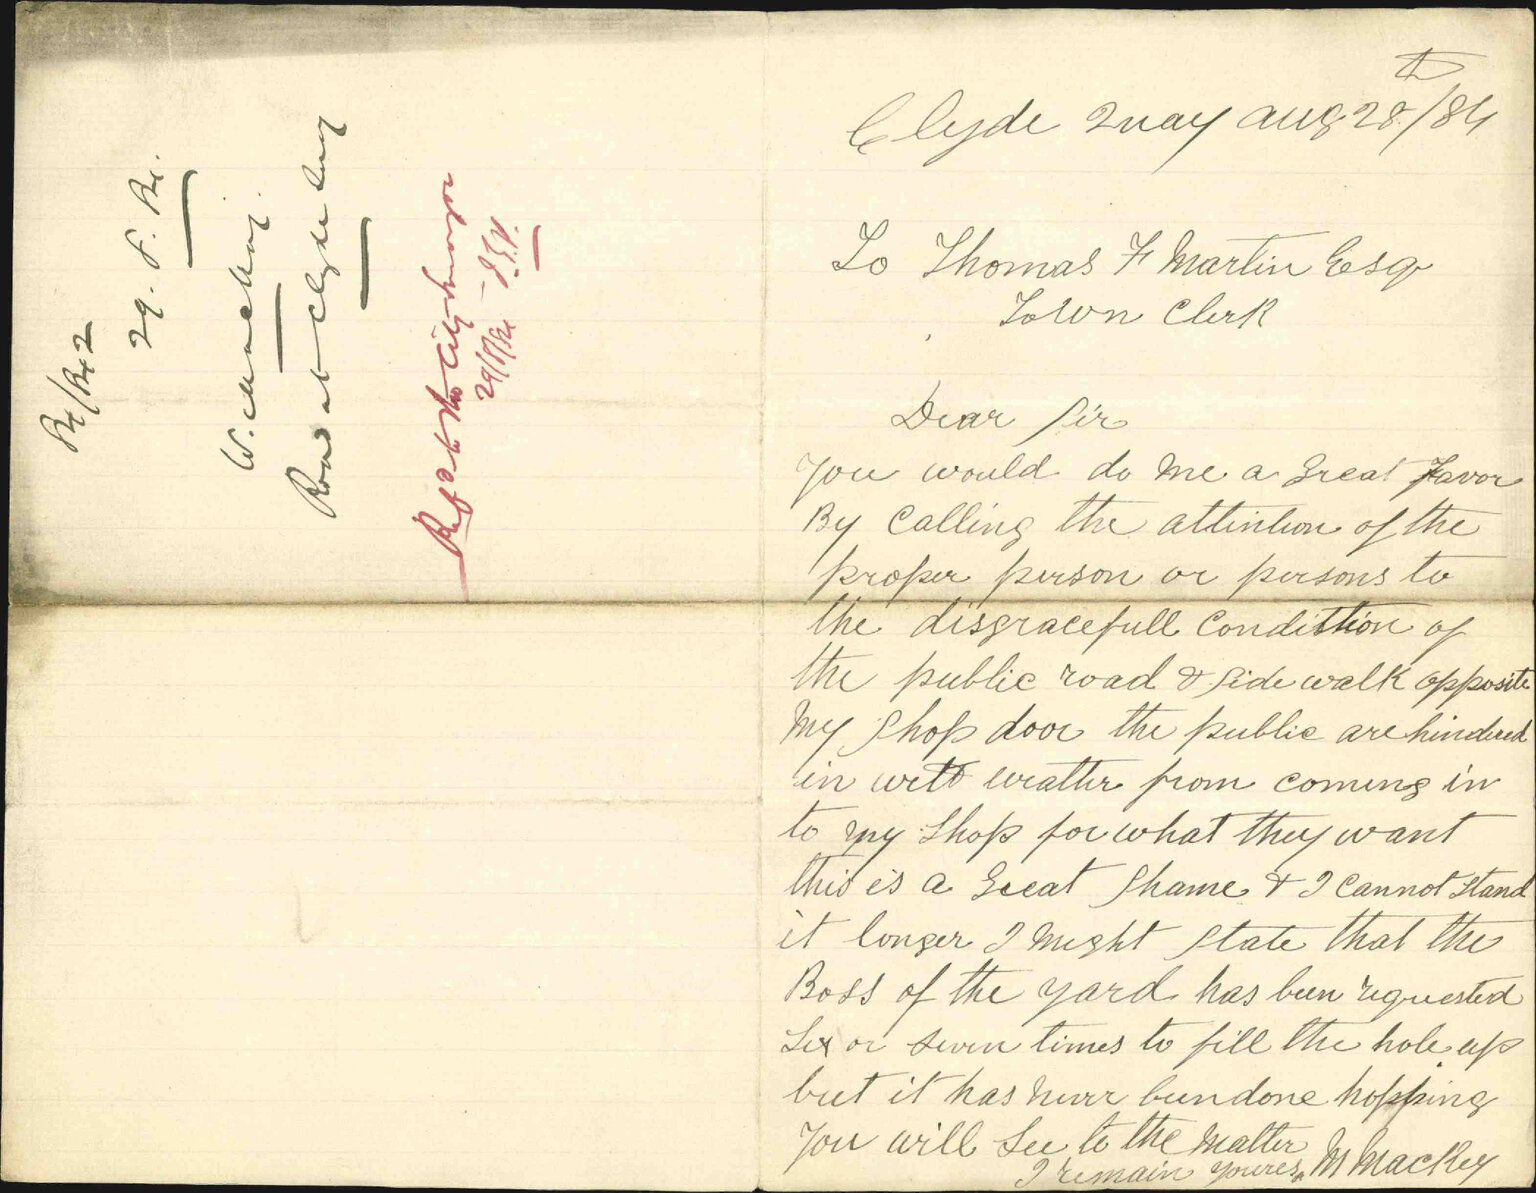 Clyde Quay Aug 28th/84
To Thomas F Martin Esqr
Town Clerk
Dear Sir
You would do me a Great Favor
By Calling the attention of the
proper person or persons to
the disgracefull Condittion of
the public road & side walk opposite
My shop door the public are hindered
in wett weather from coming in
to my shop for what they want
this is a Great shame & I Cannot Stand
it longer I Might state that the
Boss of the yard has been requested
Six or seven times to fill the hole up
but it has never been done hopping
You will See to the matter
I remain youres M Mackey
29. 8. 84.
W. Mackay.
Road at Clyde Quay
Refd to the City Surveyor
29/8/84